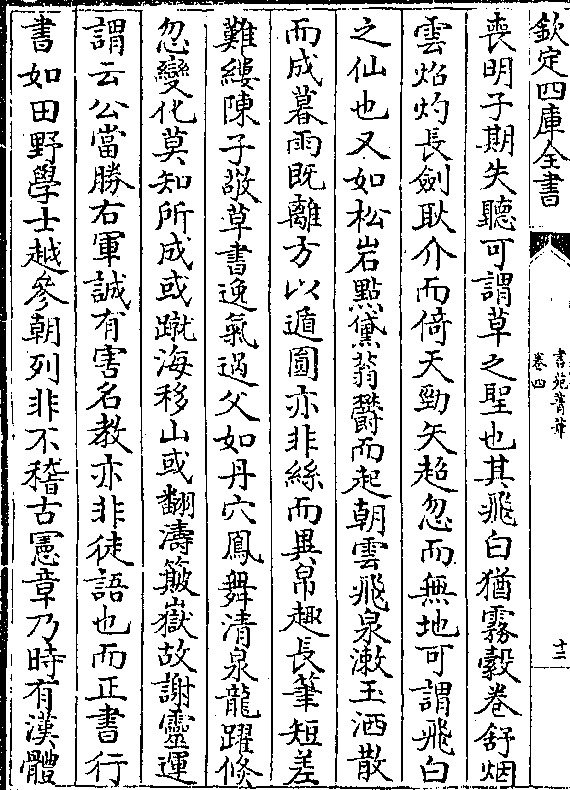 欽定四庫全書
書苑菁華
卷四
十二
喪明子期失聽可謂草之聖也其飛白猶霧縠卷舒烟
雲焰灼長劍耿介而倚天勁矢超忽而無地可謂飛白
之仙也又如松岩點黛蓊欝而起朝雲飛泉漱玉洒散
而成暮雨既離方以遁圓亦非絲而異帛趣長筆短差
難縷陳子敬草書逸氣過父如丹穴鳳舞清泉龍躍倐
忽變化莫知所成或蹴海移山或翻濤簸嶽故謝靈運
謂云公當勝右軍誠有害名教亦非徒語也而正書行
書如田野學士越參朝列非不稽古憲章乃時有漢體